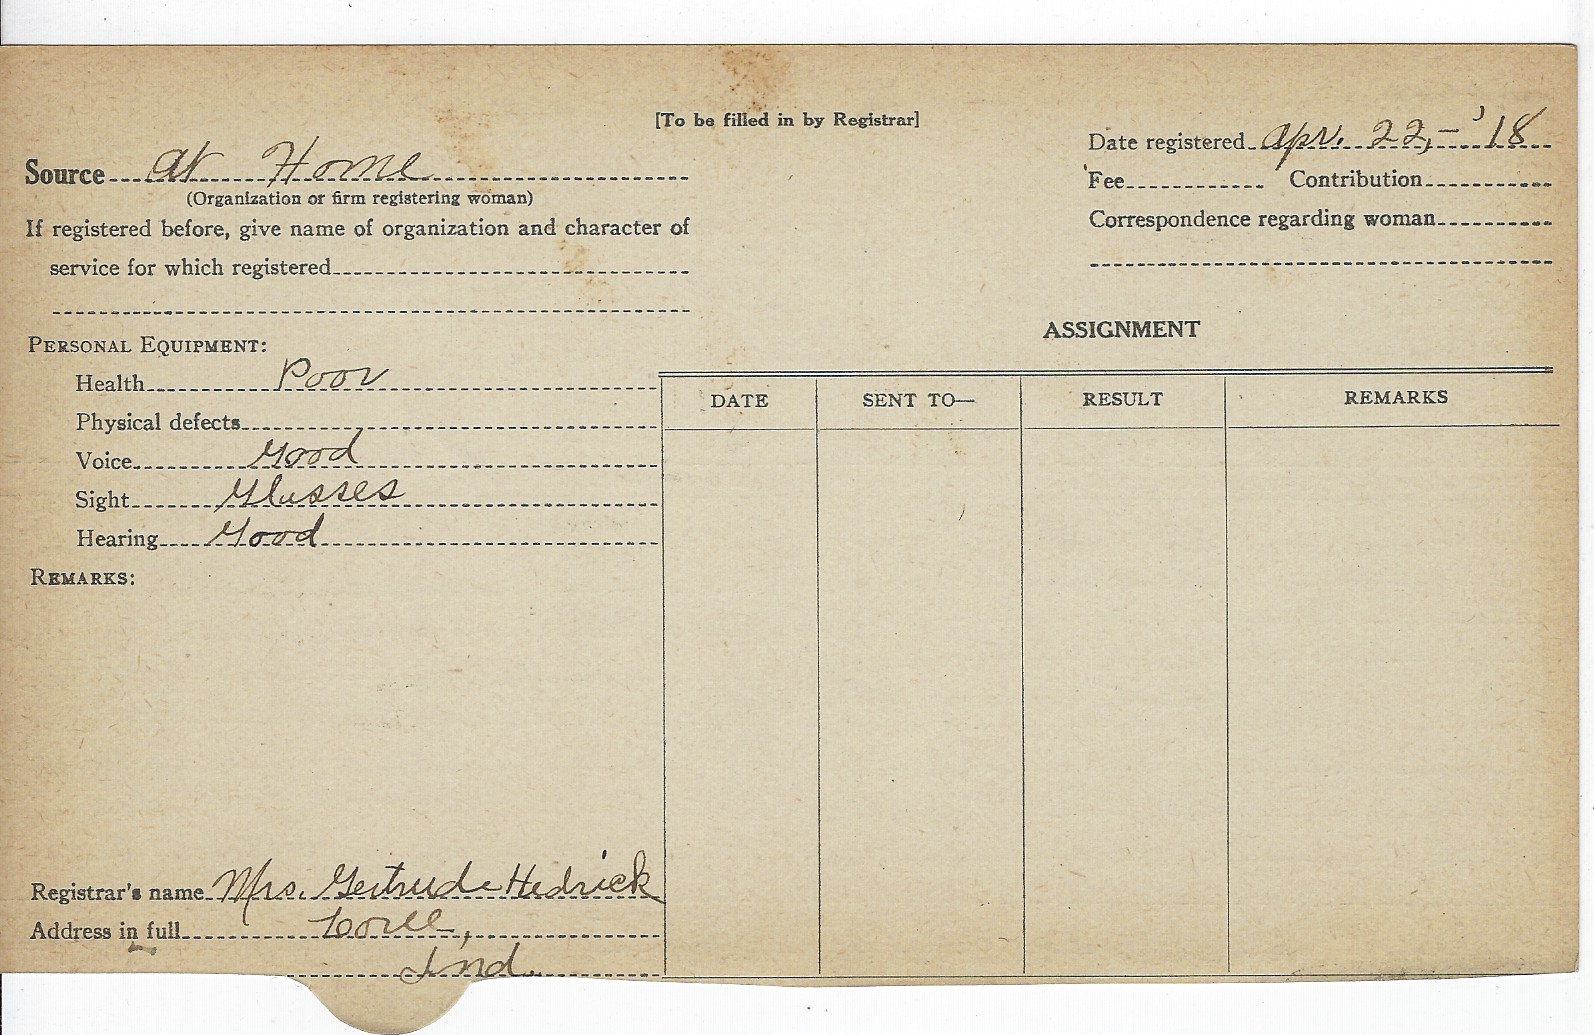 [To be filled in by Registrar]
Source At Home
(Organization or firm registering woman)
If registered before, give name of organization and character of
service for which registered
Date registered Apr. 22,-'18
Fee Contribution
Correspondence regarding woman
PERSONAL EQUIPMENT:
Health Poor
Physical defects
Voice Good
Sight Glasses
Hearing Good
REMARKS:
ASSIGNMENT
DATE SENT TO— RESULT REMARKS
Registrar's name Mrs. Gertrude Hedrick
Address in full
Ind.